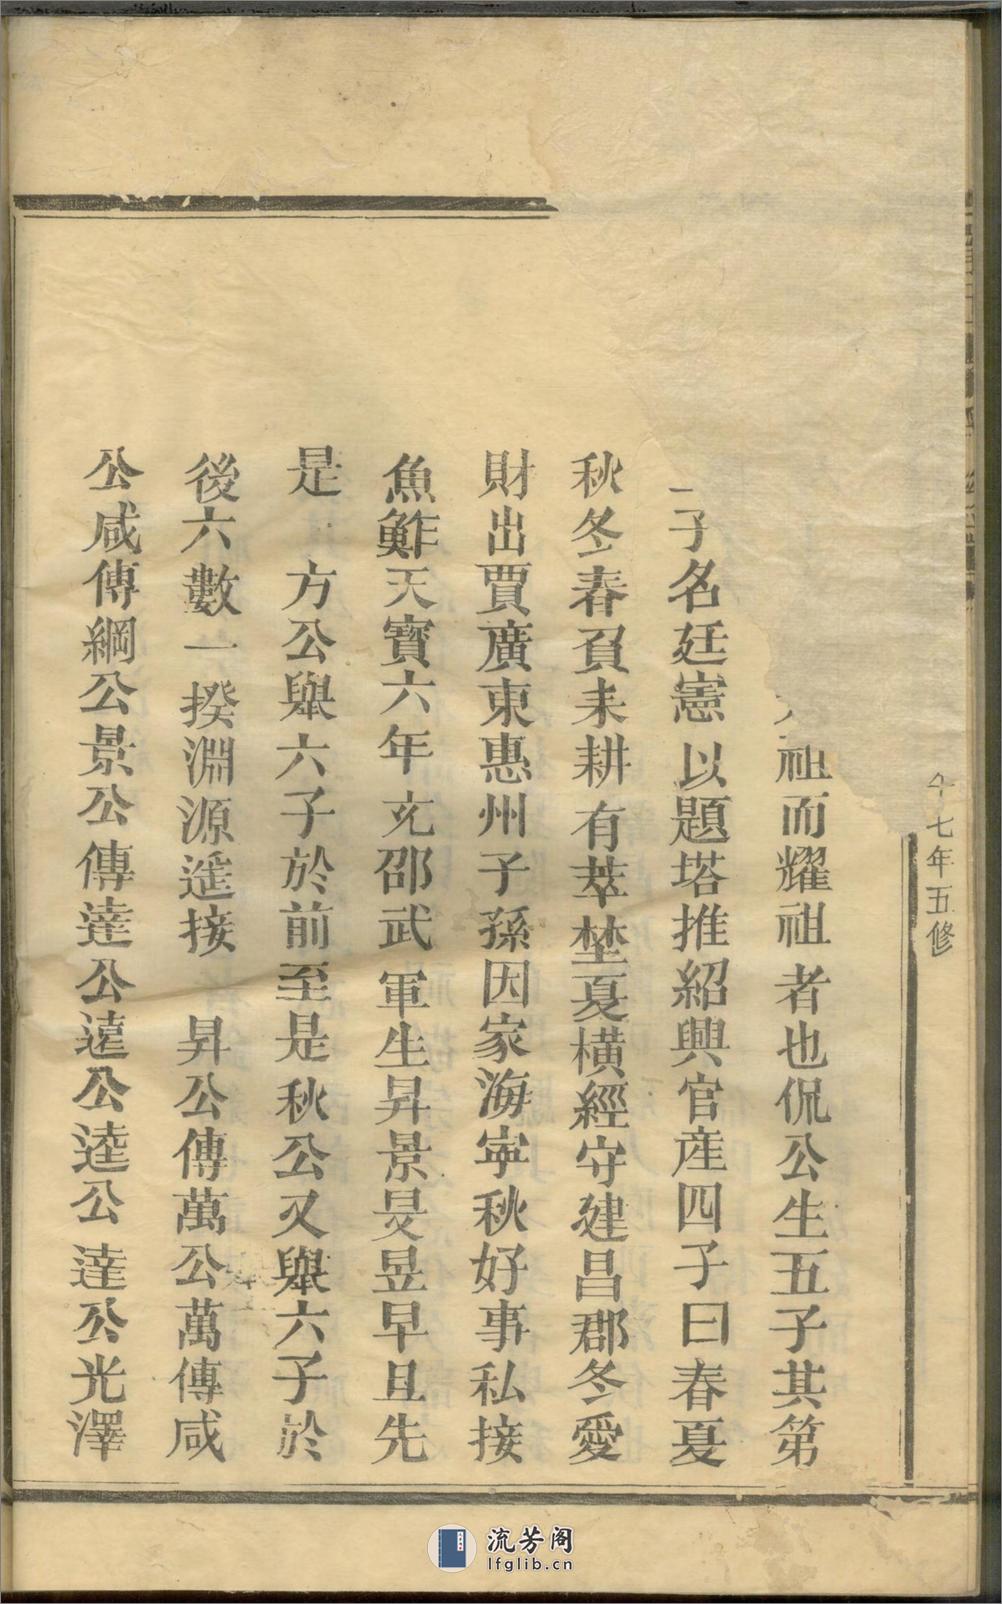 十七年五修
祖而耀祖者也侃公生五子其第
子名廷憲以題塔推紹興官産四子曰春夏
秋冬春負耒耕有莘埜夏橫經守建昌郡冬愛
財出賈廣東惠州子孫因家海寧秋好事私接
魚鮓天寶六年充邵武軍生昇景旻昱早且先
是方公舉六子於前至是秋公又舉六子於
後六數一揆淵源遥接昇公傳萬公萬傳咸
公咸傳綱公景公傳達公遠公逵公達公光澤
流芳阁
lfglib.cn